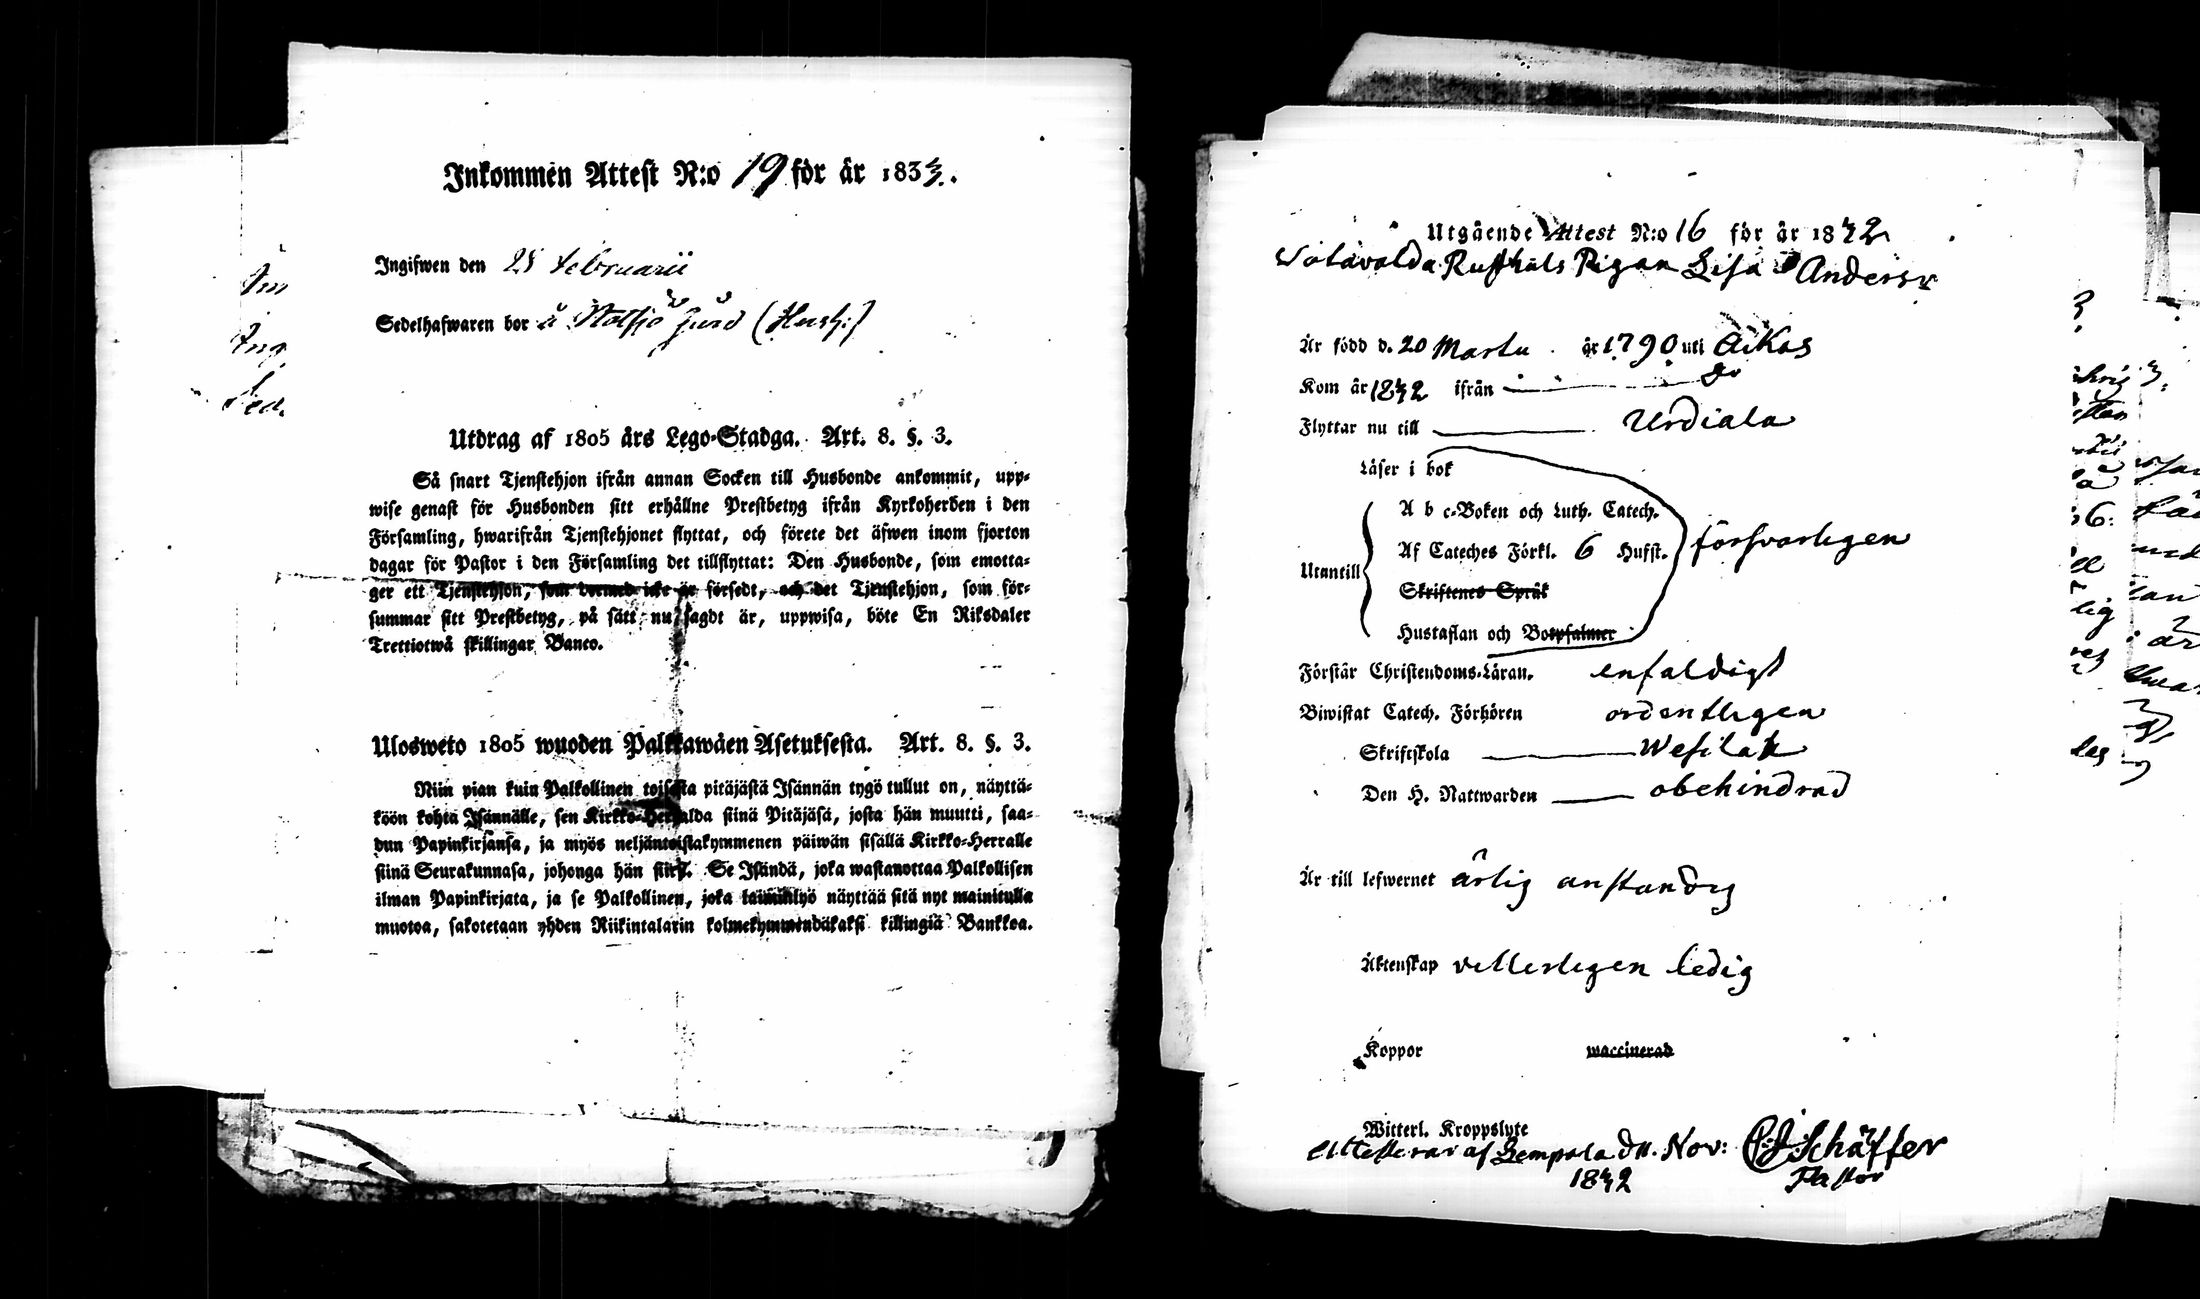 Inkommen Attest N:o 19 för år 1833.
Ingifwen den 25 Februarii
Sedelhafwaren bor å gård
Utdrag af 1805 års Lego-Stadga. Art. 8. §. 3.
Så snart Tjenstehjon ifrån annan Socken till Husbonde ankommit, upp-
wise genast för Husbonden sitt erhållne Prestbetyg ifrån Kyrkoherden i den
Församling, hwarifrån Tjenstehjonet flyttat, och förete det äfwen inom fjorton
dagar för Pastor i den Församling det tillflyttat: Den Husbonde, som emotta-
ger ett Tjenstehjon, som dermed icke är försedt, och det Tjenstehjon, som för-
summar sitt Prestbetyg, på sätt nu sagdt är, uppwisa, böte En Riksdaler
Trettiotwå skillingar Banco.
Ulosweto 1805 wuoden Palkkawäen Asetuksesta. Art. 8. §. 3.
Niin pian kuin Palkollinen toisesta pitäjästä Isännän tygö tullut on, näyttä-
köön kohta Isännälle, sen Kirkko-Herralda siinä Pitäjäsä, josta hän muutti, saa-
dun Papinkirjansa, ja myös neljäntoistakymmenen päiwän sisällä Kirkko-Herralle
siinä Seurakunnasa, johonga hän siirs. Se Isändä, joka wastanottaa Palkollisen
ilman Papinkirjata, ja se Palkollinen, joka laiminlyö näyttää sitä nyt mainitulla
muotoa, sakotetaan yhden Riikintalarin kolmekymmendäkaksi killingiä Bankkoa.
Utgående Attest N:o 16 för år 1842
Rusthåls Pigan Lisa Andersr
Är född d. 20 Martii år 1790 uti Aikas
Kom år 1842 ifrån do
Flyttar nu till Urdiala
Läser i bok
A b c-Boken och Luth. Catech.
Af Cateches Förkl. 6 Hufst. försvarligen
Utantill
Skriftenes Språk
Hustaflan och Botpsalmer
Förstår Christendoms-Läran. enfaldigt
Biwistat Catech. Förhören ordentligen
Skriftskola Wesilax
Den H. Nattwarden obehindrad
Är till lefwernet ärlig anständig
Äktenskap vitterligen ledig
Koppor waccinerad
Witterl. Kroppslyte
Attesterar af Lempola d 11. Nov: CJ Schäffer
1842 Pastor